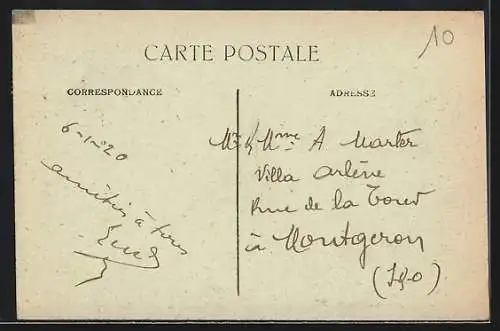 10
CARTE POSTALE
CORRESPONDANCE
ADRESSE
6-1-20
amitiés à tous
Mr & Mme A Marter
Villa Arlène
Rue de la Tour
à Montgeron
(S&O)